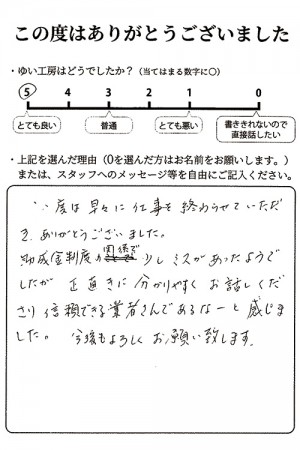 この度はありがとうございました
・ゆい工房はどうでしたか？（当てはまる数字に○）
5 4 3 2 1 0
とても良い 普通 とても悪い 書ききれないので直接話したい
・上記を選んだ理由（0を選んだ方はお名前をお願いします。）
または、スタッフへのメッセージ等を自由にご記入ください。
この度は早々に仕事を終わらせていただ
き、ありがとうございました。
助成金制度の関係で少しミスがあったようで
したが 正直に分かりやすくお話しくだ
さり信頼できる業者さんであるなーと感じま
した。今後もよろしくお願い致します。